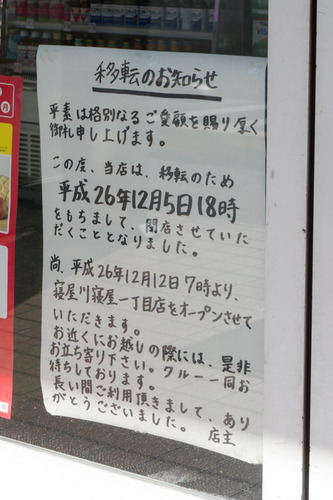 移転のお知らせ
平素は格別なるご愛顧を賜り厚く
御礼申し上げます。
この度、当店は、移転のため
平成26年12月5日18時
をもちまして、閉店させていた
だくこととなりました。
尚、平成26年12月12日7時より、
寝屋川寝屋一丁目店をオープンさせて
いただきます。
お近くにお越しの際には、是非
お立ち寄り下さい。クルー一同お
待ちしております。
長い間ご利用頂きまして、あり
がとうございました。 店主